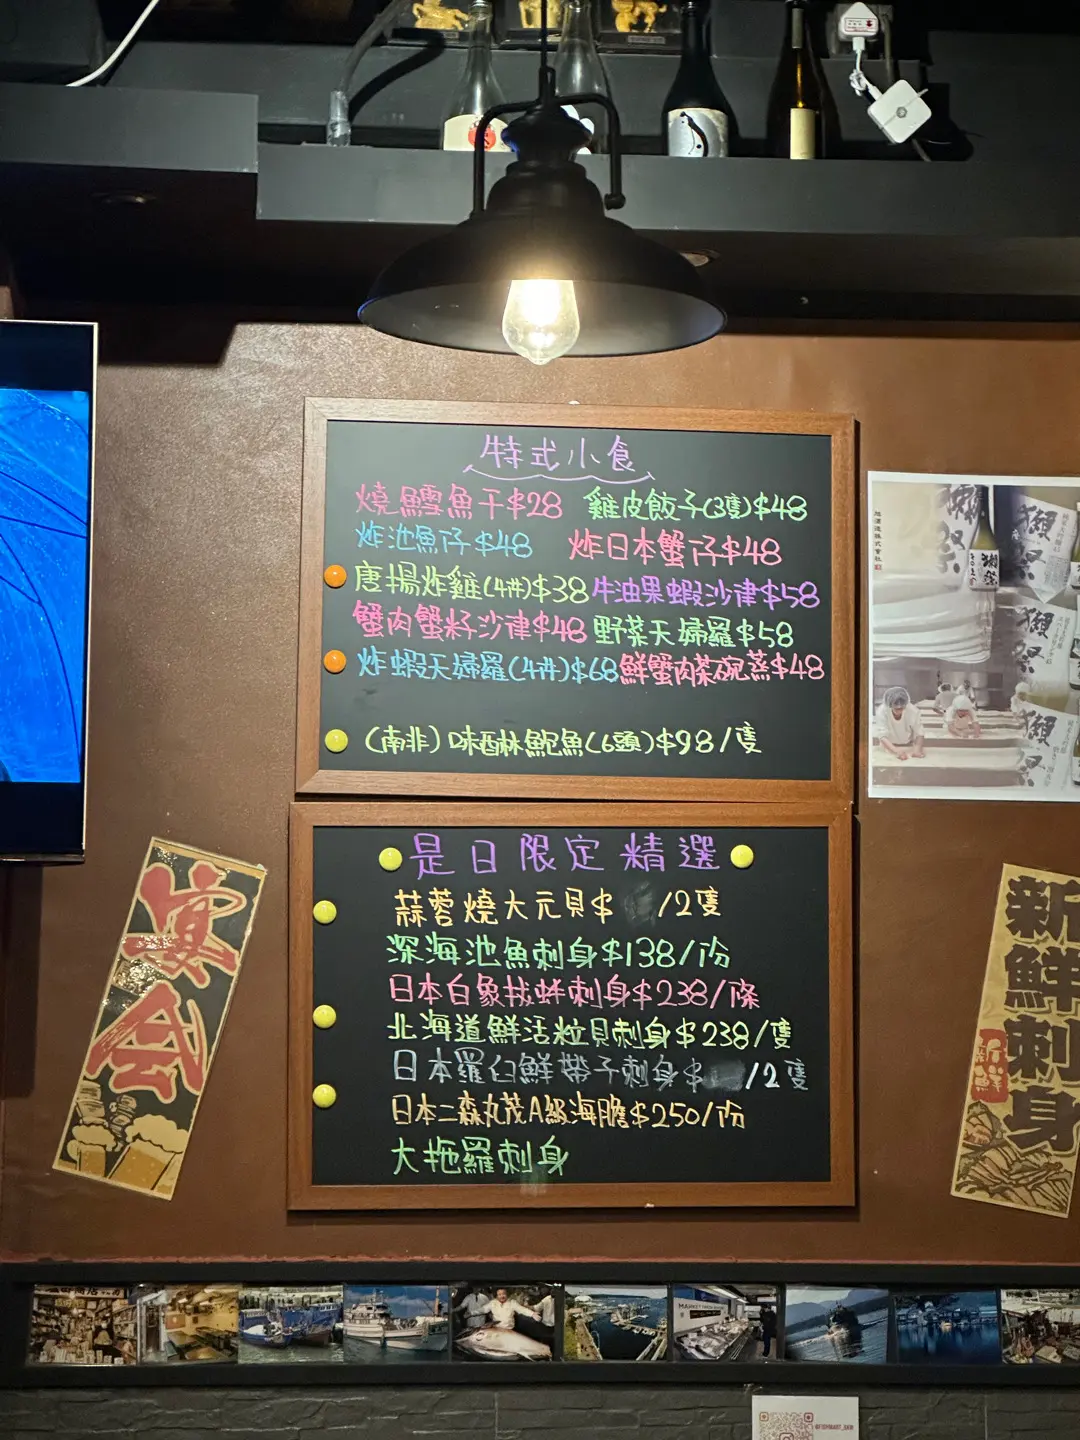 特式小食
燒鱈魚干$28 雞皮餃子(3隻)$48
炸池魚仔$48 炸日本蟹仔$48
唐揚炸雞(4件)$38 牛油果蝦沙律$58
蟹肉蟹籽沙律$48 野菜天婦羅$58
炸蝦天婦羅(4件)$68 鮮蟹肉茶碗蒸$48
(南非)味醂鮑魚(6頭)$98/隻
是日限定精選
蒜蓉燒大元貝$ /2隻
深海池魚刺身$138/份
日本白象拔蚌刺身$238/條
北海道鮮活粒貝刺身$238/隻
日本羅臼鮮帶子刺身$ /2隻
日本二森丸茂A級海膽$250/份
大拖羅刺身
宴会
新鮮刺身
新鮮
獺祭
獺祭
獺祭
獺祭
獺祭
旭酒造株式會社
MARKET